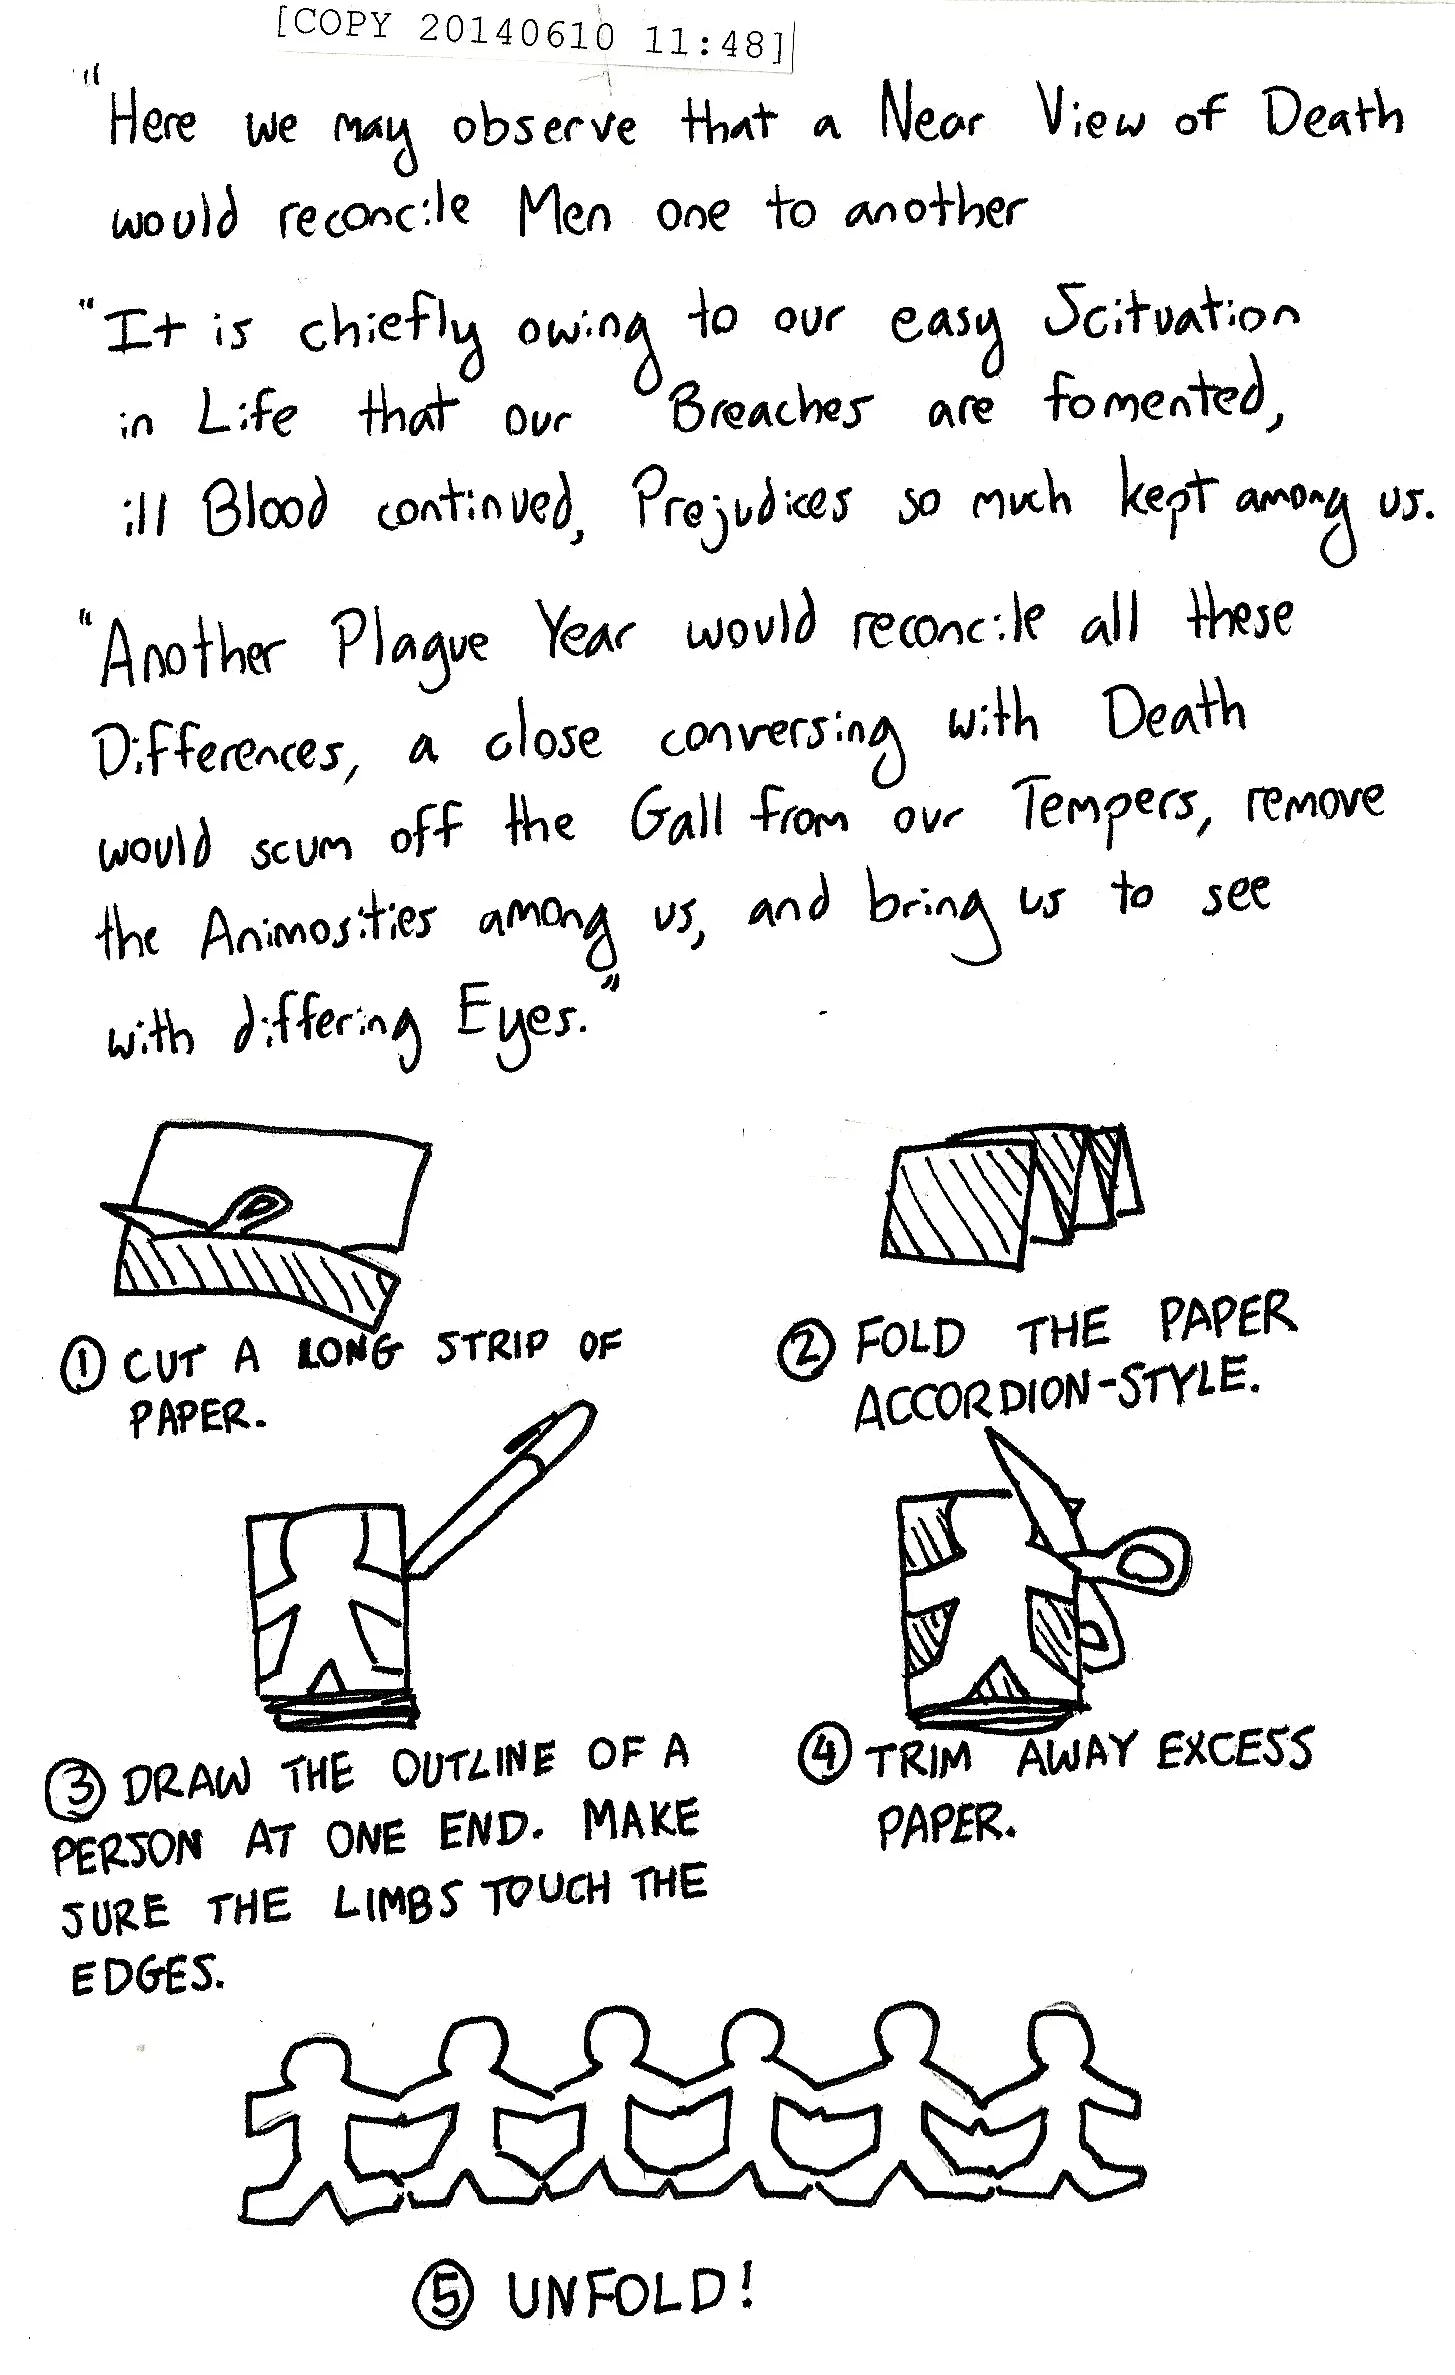 [COPY 20140610 11:48]
"Here we may observe that a Near View of Death
would reconcile Men one to another
"It is chiefly owing to our easy Scituation
in Life that our Breaches are fomented,
ill Blood continued, Prejudices so much kept among us.
"Another Plague Year would reconcile all these
Differences, a close conversing with Death
would scum off the Gall from our Tempers, remove
the Animosities among us, and bring us to see
with differing Eyes."
① CUT A LONG STRIP OF
PAPER.
② FOLD THE PAPER
ACCORDION-STYLE.
③ DRAW THE OUTLINE OF A
PERSON AT ONE END. MAKE
SURE THE LIMBS TOUCH THE
EDGES.
④ TRIM AWAY EXCESS
PAPER.
⑤ UNFOLD!